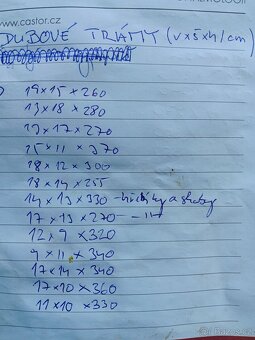 www.castor.cz
DUBOVÉ TRÁMY (v×š×h/cm)
19×15×260
13×18×280
13×17×270
15×11×370
18×12×300
18×14×255
14×13×330 - hřebíky a skoby
17×13×270 - 11 -
12×9×320
9×11×340
17×14×340
17×10×360
11×10×330